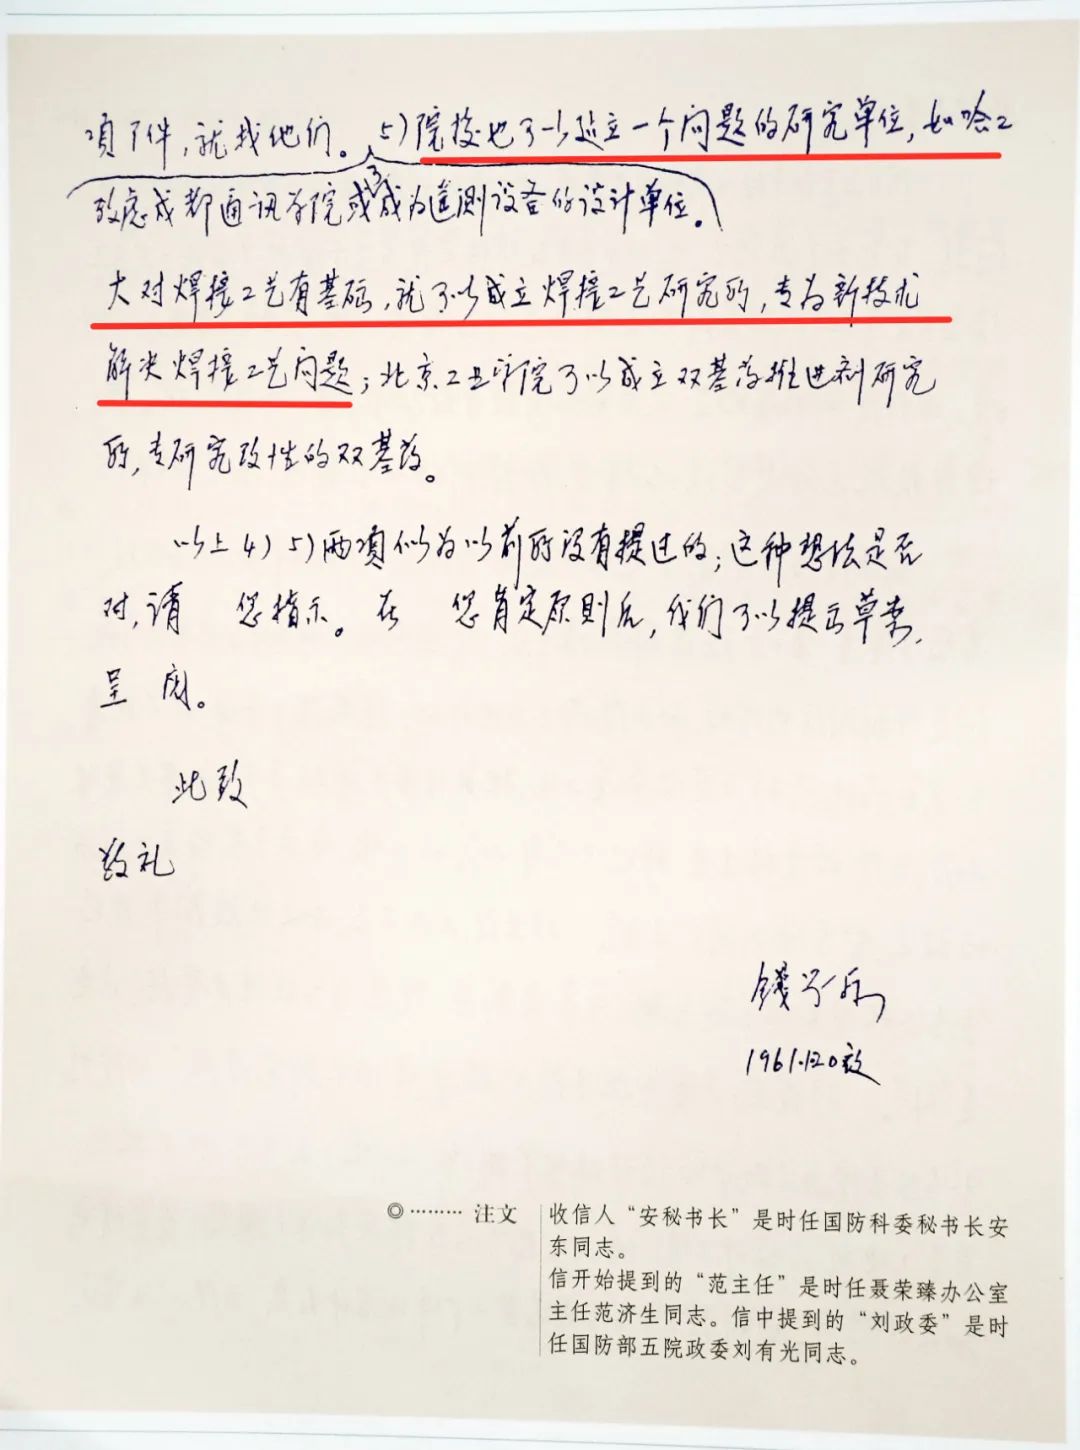 项了件，就找他们。5）院校也可以建立一个问题的研究单位，如哈工
致虑成都通讯学院或成为遥测设备的设计单位。
大对焊接工艺有基础，就可以成立焊接工艺研究所，专为新技术
解决焊接工艺问题；北京工业学院可以成立双基药推进剂研究
所，专研究改性的双基药。
以上4）5）两项似为以前所没有提过的；这种想法是否
对，请 您指示。在 您肯定原则后，我们可以提出草案，
呈阅。
此致
敬礼
钱学森
1961.12.0
◎………注文
收信人“安秘书长”是时任国防科委秘书长安
东同志。
信开始提到的“范主任”是时任聂荣臻办公室
主任范济生同志。信中提到的“刘政委”是时
任国防部五院政委刘有光同志。